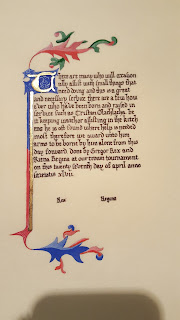 There are many who will gradion
ally assist with small things that
need doing and this is a great
and necessary service there are a few how
ever who have been born and raised in
service such as Cristian
it keeping weather assisting in the kitch
he is oft found where help is needed
most therefore we award unto him
arms to be borne by him alone from this
day forward done by Gregor Rex and
Kiena Regina at our crown tournament
on this twenty seventh day of april anno
societatis xlviii
Rex Regina